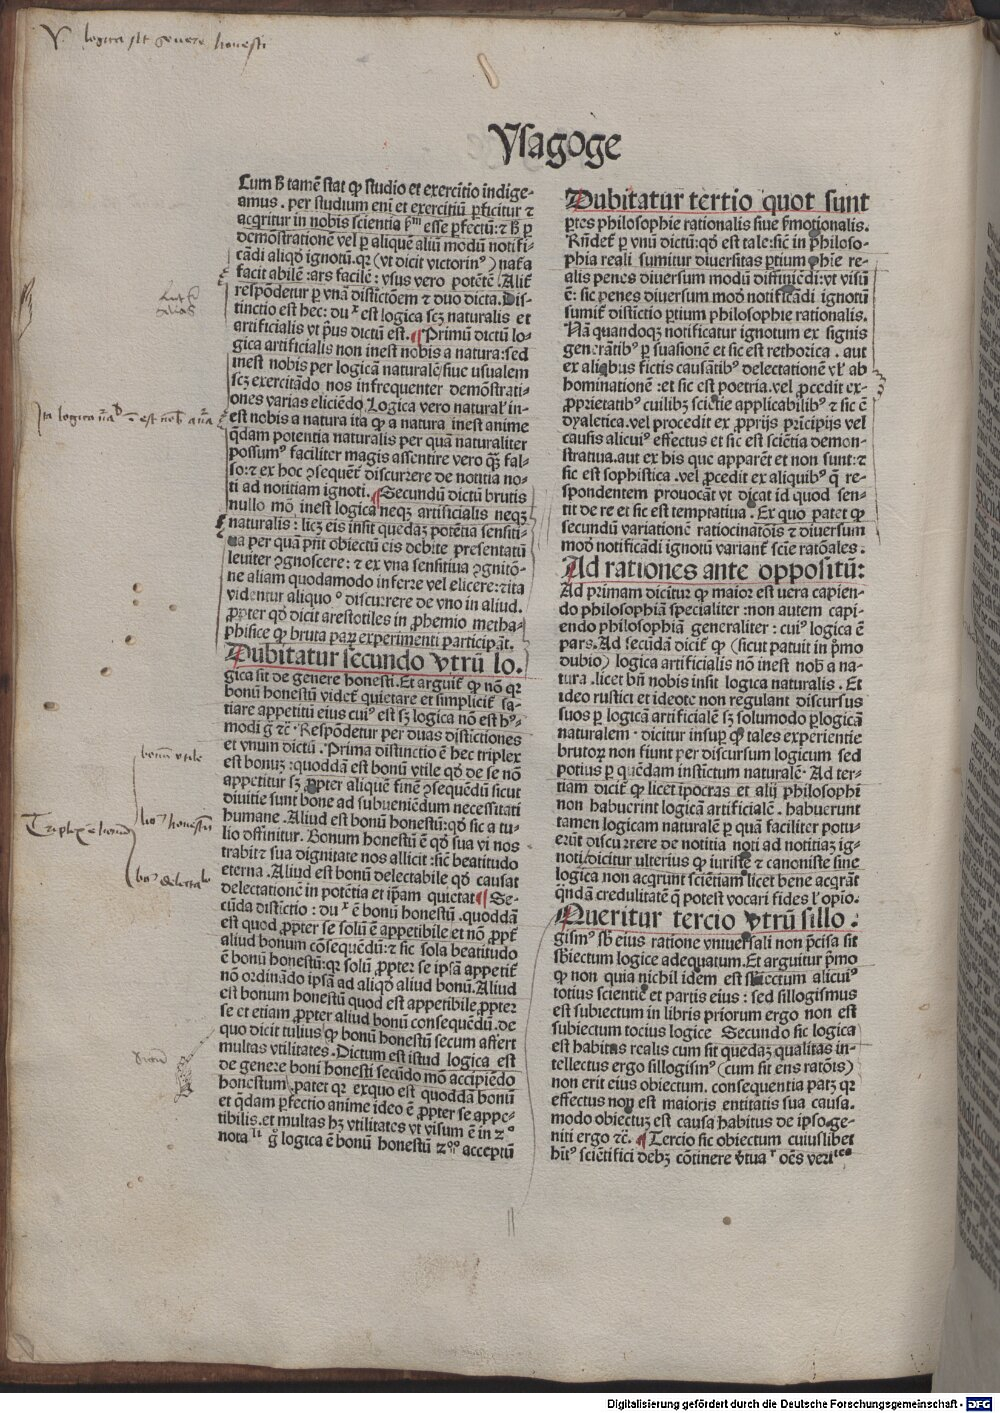 V. logica sit genere honesti
Ysagoge
Cum ħ tamē stat ꝙ studio et exercitio indige-
amus . per studium eni et exercitiū ꝑficitur ⁊
acqritur in nobis scientia pͥm esse ꝑfectū: ⁊ ħ ꝑ
demōstrationē vel ꝑ aliquē aliū modū notifi-
cādi aliqđ ignotū. qꝛ (vt dicit victorinꝰ) nat̄a
facit abilē : ars facilē : vsus vero potētē . Alit̄
respōdetur ꝑ vnā distictōem ⁊ duo dicta. Dis-
tinctio est hec: duˣ est logica scꝫ naturalis et
artificialis vt pͥus dictū est. ¶ Primū dictū lo-
gica artificialis non inest nobis a natura: sed
inest nobis per logicā naturalē/siue vsualem
scꝫ exercitādo nos infrequenter demōstrati-
ones varias eliciēdo. Logica vero natural̄ in-
est nobis a natura ita ꝙ a natura inest anime
q̄dam potentia naturalis per quā naturaliter
possumꝰ faciliter magis assentire vero q̄ꝫ fal-
so: ⁊ ex hoc ꝯsequēt̄ discurrere de notitia no-
ti ad notitiam ignoti. ¶ Secundū dictū brutis
nullo mō inest logica neqꝫ artificialis neqꝫ
naturalis : licꝫ eis insit quedaꝫ potētia sensiti-
ua per quā pn̄t obiectū eis debite presentatū
leuiter ꝯgnoscere : ⁊ ex vna sensitiua ꝯgnitō-
ne aliam quodamodo inferre vel elicere: ⁊ ita
videntur aliquo º discurrere de vno in aliud.
ꝓpter qđ dicit arestotiles in ꝓhemio metha-
phisice ꝙ bruta paꝝ experimenti participāt.
Dubitatur secundo vtrū lo.
gica sit de genere honesti. Et arguit̄ ꝙ nō qꝛ
bonū honestū videt̄ quietare et simplicit̄ sa-
tiare appetitū eius cuiꝰ est sꝫ logica nō est hꝰ-
modi g̊ ⁊c̄ . Respōdetur per duas distictiones
et vnum dictū . Prima distinctio ē hec triplex
est bonuꝫ : quoddā est bonū vtile qđ de se nō
appetitur sꝫ ꝓpter aliquē finē ꝯsequēdū sicut
diuitie sunt bone ad subueniēdum necessitati
humane. Aliud est bonū honestū: qđ sic a tu-
lio diffinitur. Bonum honestū ē qđ sua vi nos
trahit ⁊ sua dignitate nos allicit : sic̄ beatitudo
eterna . Aliud est bonū delectabile qđ causat
delectationē in potētia et ip̄am quietat ¶ Se-
cūda distictio : duˣ ē bonū honestū . quoddā
est quod ꝓpter se solū ē appetibile et nō ꝓpt̄
aliud bonum cōsequēdū: ⁊ sic sola beatitudo
ē bonū honestū: qꝛ solū ꝓpter se ipsā appetit̄
nō ordinādo ipsā ad aliqđ aliud bonū. Aliud
est bonum honestū quod est appetibile ꝓpter
se et etiam ꝓpter aliud bonū consequēdū . de
quo dicit tulius ꝙ bonū honestū secum affert
multas vtilitates . Dictum est istud logica est
de genere boni honesti secūdo mō accipiēdo
honestum . patet qꝛ exquo est quoddā bonū
et q̄dam ꝑfectio anime ideo ē ꝓpter se appe-
tibilis. et multas hꝫ vtilitates vt visum ē in ⁊º
nota li g̊ logica ē bonū honestū ⁊º mº acceptū
bonū vtile
Triplex ē bonū
boᵐ honestū
boᵐ delectabᵉ
Dubitatur tertio quot sunt
ꝑtes philosophie rationalis siue ſmotionalis.
Rn̄det̄ ꝑ vnū dictū: qđ est tale: sic̄ in philoso-
phia reali sumitur diuersitas ꝑtium ꝓhie re-
alis penes diuersum modū diffiniēdi: vt visū
ē: sic penes diuersum modū notificādi ignotū
sumit̄ distictio ꝑtium philosophie rationalis.
Nā quandoqꝫ notificatur ignotum ex signis
generātibꝰ ꝑ suasionē et sic est rethorica . aut
ex aliq̄bus fictis causātibꝰ delectationē vl̄ ab
hominationē : et sic est poetria. vel ꝓcedit ex-
ꝓprietatibꝰ cuilibꝫ sciētie applicabilibꝰ ⁊ sic ē
dyaletica. vel ꝓcedit ex ꝓprijs pr̄icipijs vel
causis alicuiꝰ effectus et sic est sciētia demon-
stratiua. aut ex his que apparēt et non sunt: ⁊
sic est sophistica . vel ꝓcedit ex aliquibꝰ q̄ re-
spondentem prouocāt vt dicat id quod sen-
tit de re et sic est temptatiua . Ex quo patet ꝙ
secundū variationē ratiocinatōis ⁊ diuersum
modū notificādi ignotū variant̄ scīe ratōales .
Ad rationes ante oppositū:
Ad primam dicitur ꝙ maior est uera capien-
do philosophiā specialiter : non autem capi-
endo philosophiā generaliter : cuiꝰ logica ē
pars. Ad secūdā dicit̄ ꝙ (sicut patuit in pͥmo
dubio) logica artificialis nō inest nob̄ a na-
tura . licet bn̄ nobis insit logica naturalis . Et
ideo rustici et ideote non regulant discursus
suos ꝑ logicā artificialē sꝫ solumodo ꝑlogicā
naturalem . dicitur insuꝑ ꝙ tales experientie
brutoꝝ non fiunt per discursum logicum sed
potius ꝑ quēdam instictum naturalē. Ad ter-
tiam dicit̄ ꝙ licet ipocras et alij philosophi
non habuerint logicā artificialē . habuerunt
tamen logicam naturalē ꝑ quā faciliter potu-
erūt discurrere de notitia noti ad notitiaꝫ ig-
noti / dicitur ulterius ꝙ iuriste ⁊ canoniste sine
logica non acqrunt sciētiam licet bene acqrāt
qn̄dā credulitatē q̄ potest vocari fides l' opio.
Queritur tercio vtrū sillo .
gismꝰ sꝫ eius ratione vniuersali non p̄cisa sit
sb̄iectum logice adequatum. Et arguitur pͥmo
ꝙ non quia nichil idem est subiectum alicuiꝰ
totius scientie et partis eius : sed sillogismus
est subiectum in libris priorum ergo non est
subiectum tocius logice Secundo sic logica
est habitus realis cum sit quedaꝫ qualitas in-
tellectus ergo sillogismꝰ (cum sit ens ratōis)
non erit eius obiectum. consequentia patꝫ qꝛ
effectus non est maioris entitatis sua causa.
modo obiectuꝫ est causa habitus de ipso ge-
niti ergo ⁊c̄. ¶ Tercio sic obiectum cuiuslibet
hītꝰ sciētifici debꝫ cōtinere v̄tuaʳ oēs veriᵗᵉˢ
Digitalisierung gefördert durch die Deutsche Forschungsgemeinschaft - DFG